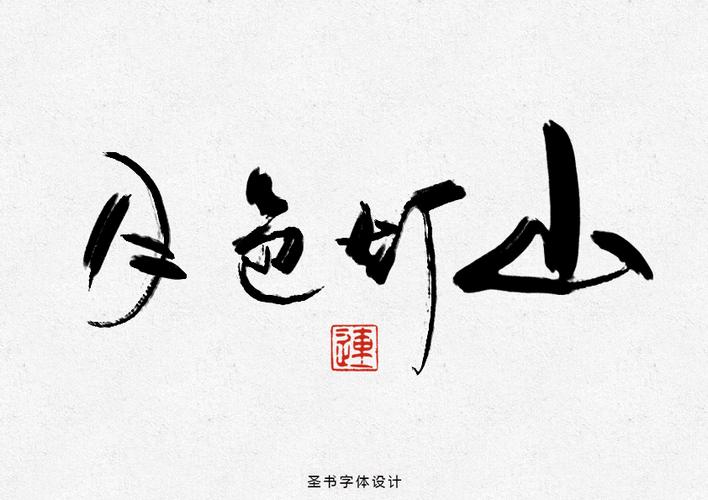 月色灯山
連
圣书字体设计